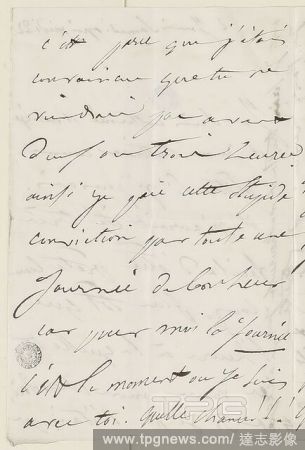 c'est parce que j'étais
convaincu que tu ne
viendrais pas avant
deux ou trois heures
ainsi je paie cette stupide
conviction par toute une
journée de bonheur
car pour moi la journée
c'est le moment où je suis
avec toi. Quelle chance!!
TPG
www.tpgnews.com/達志影像